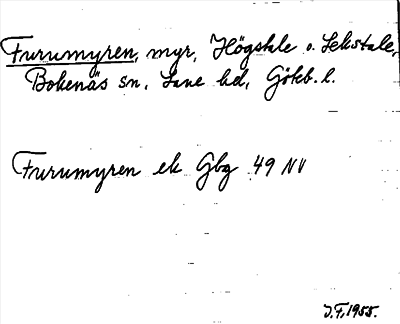 Furumyren, myr, Högstale o. Lekstale,
Bokenäs sn, Lane hd, Göteb. l.
Furumyren ek Gbg 49 NV
J.F. 1955.